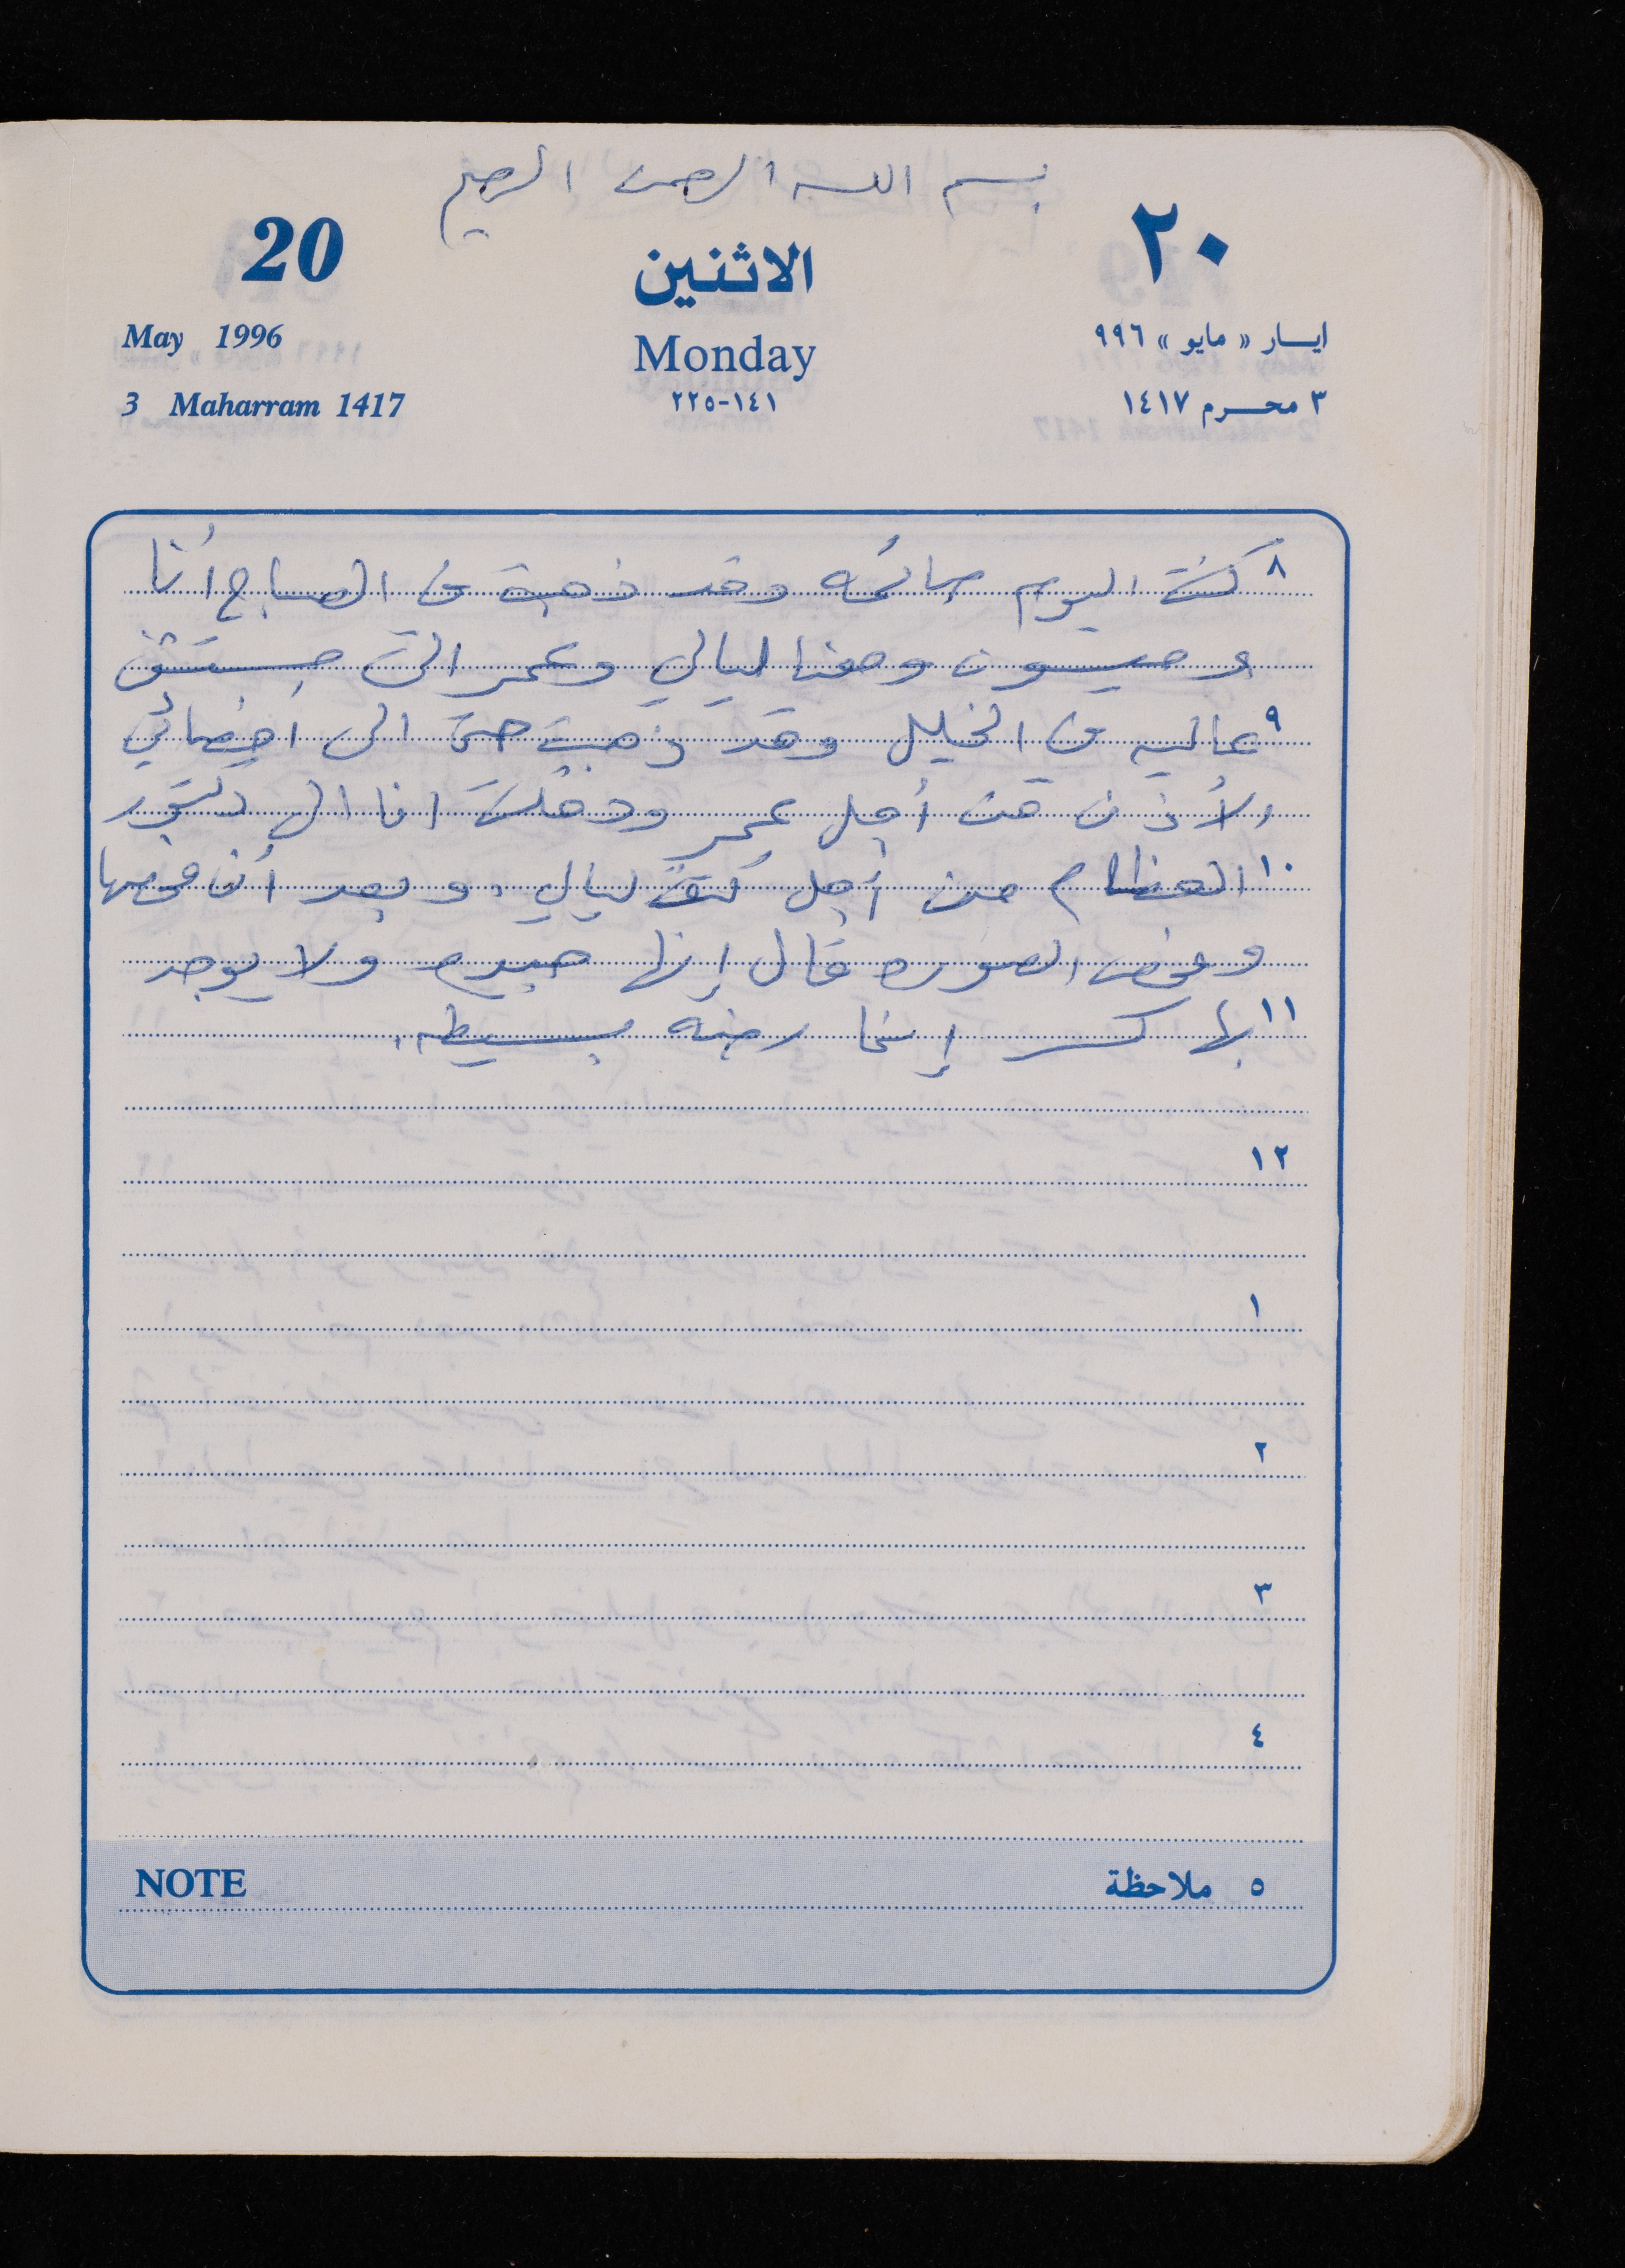 بسم الله الرحمن الرحيم
20 الاثنين ٢٠
May 1996 Monday ايسار « مايو » ٩٩٦
3 Maharram 1417 ٢٢٥-١٤١ ٣ محرم ١٤١٧
٨ كنت اليوم صائمه وقد ذهبت في الصباح أنا
و ميسون ومعنا ليالي وعمر الى مستشفى
٩ عاليه في الخليل وقد ذهبت حتى الى اخصائي
الأذن من أجل عمر ودخلت انا الى دكتور
١٠ العظام من أجل كتف ليالي. وبعد أن فحصها
وفحص الصوره قال إنها جيده ولا يوجد
١١ بها كسر إنما رضه بسيطه.
١٢
١
٢
٣
٤
NOTE ٥ ملاحظة